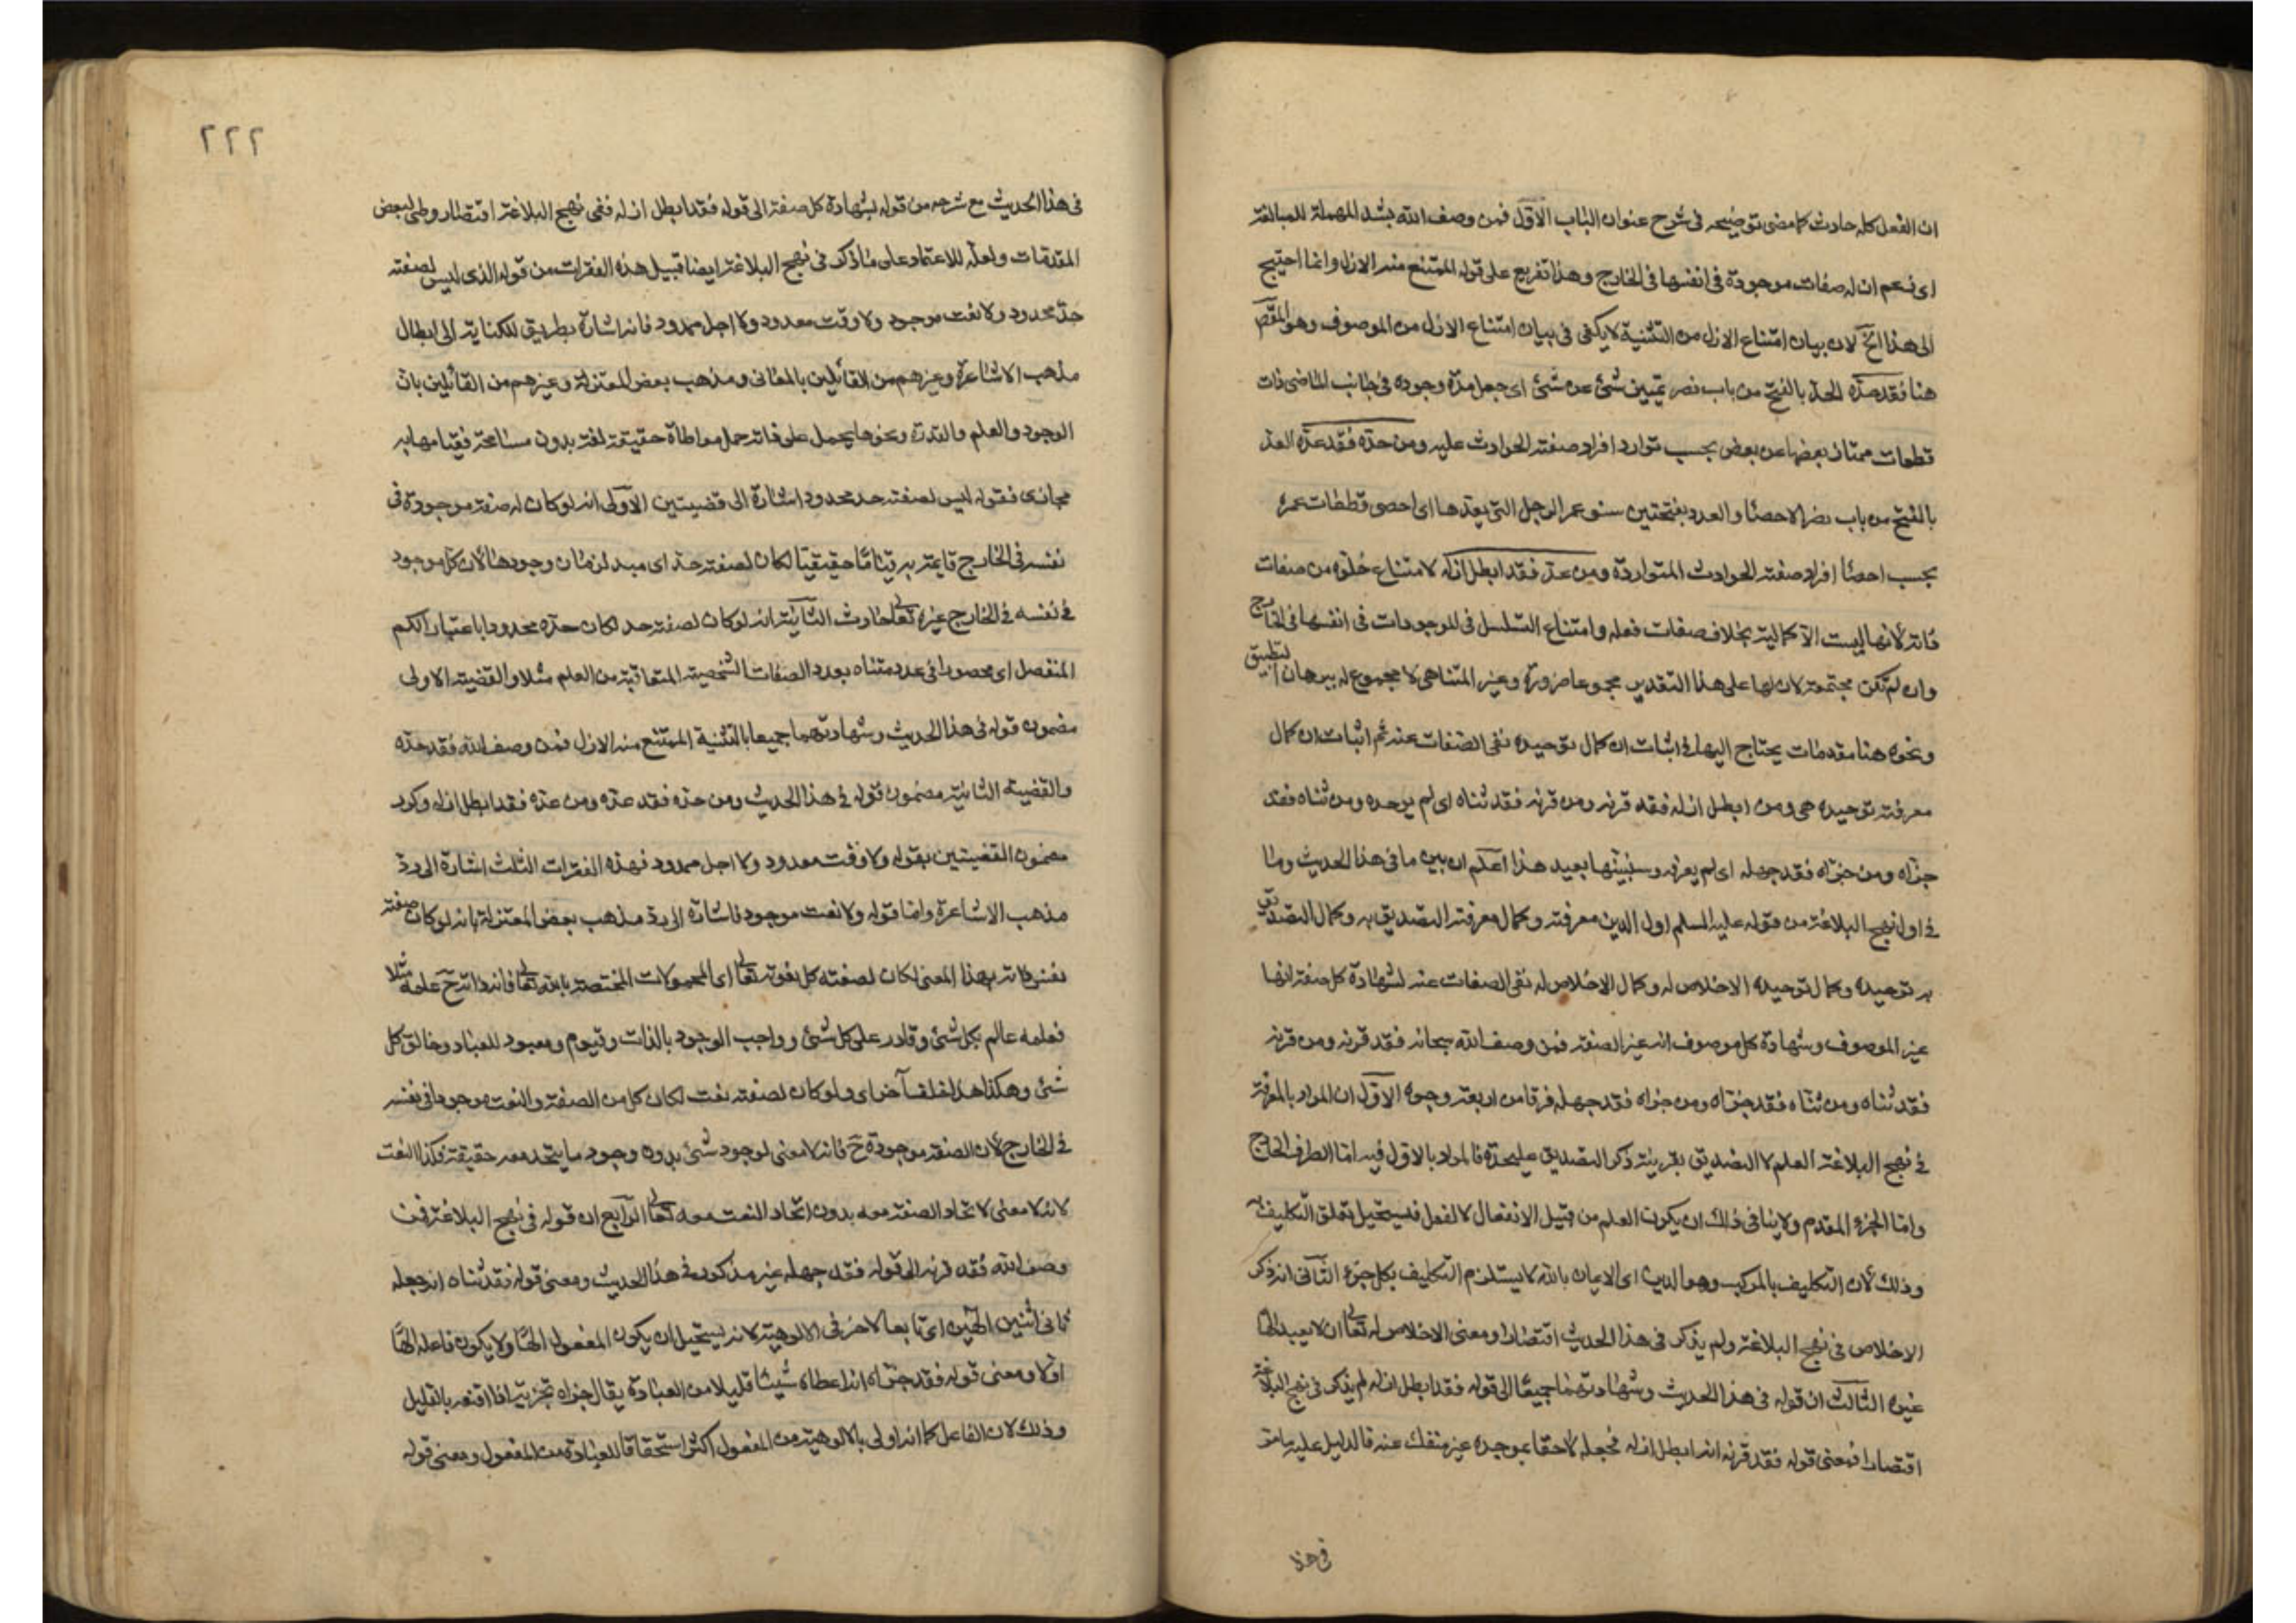 ان الفعل كله حادث كما مضى توضيحه فى شرح عنوان الباب الاوّل فمن وصف الله بشد المهملة للمبالغة
اى زعم ان له صفات موجودة فى انفسها فى الخارج وهذا تفريع على قوله الممتنع منه الازل وانما احتيج
الى هذا الخ لان بيان امتناع الازل من التثنية لا يكفى فى بيان امتناع الازل من الموصوف وهو المقص
هنا فقد حدّه الحدّ بالفتح من باب نصر تميين شئ عن شئ اى جعل مدّة وجوده فى جانب الماضى ذات
قطعات ممتاز بعضها عن بعض بحسب توارد افراد صفته الحوادث عليه ومن حدّه فقد عدّه العدّ
بالفتح من باب نصر الاحصاء والعدد بفتحتين سنو عمر الرجل التى يعدّها اى احصى قطعات عمره
بحسب احصاء افراد صفته الحوادث المتواردة ومن عدّه فقد ابطل ازله لامتناع خلوّه من صفات
ذاته لانها ليست الا كمالية بخلاف صفات فعله وامتناع التسلسل فى الموجودات فى انفسها فى الخارج
وان لم تكن مجتمعة لان لها على هذا التقدير مجموعا ضرورة وغير المتناهى لا مجموع له ببرهان التطبيق
ونحوه هنا مقدمات يحتاج اليها فى اثبات ان كمال توحيده نفى الصفات عنه ثم اثبات ان كمال
معرفته توحيده هى ومن ابطل ازله فقد قرنه ومن قرنه فقد ثناه اى لم يوحده ومن ثناه فقد
جزّاه ومن جزّاه فقد جهله اى لم يعرفه وسنبينها بعيد هذا اعلم ان بين ما فى هذا الحديث وما
فى اول نهج البلاغة من قوله عليه السلم اول الدين معرفته وكمال معرفته التصديق به وكمال التصديق
به توحيده وكمال توحيده الاخلاص له وكمال الاخلاص له نفى الصفات عنه لشهادة كل صفة انها
غير الموصوف وشهادة كل موصوف انه غير الصفة فمن وصف الله سبحانه فقد قرنه ومن قرنه
فقد ثناه ومن ثناه فقد جزّاه ومن جزاه فقد جهله فرقا من اربعة وجوه الاوّل ان المراد بالمعرفة
فى نهج البلاغة العلم لا التصديق بقرينة ذكر التصديق عليحدّة فالمراد بالاول فيه امّا الطرف الخارج
وامّا الجزء المقدم ولا ينافى ذلك ان يكون العلم من قبيل الانفعال لا الفعل فيستحيل تعلق التكليف به
وذلك لان التكليف بالمركب وهو الدين اى الايمان بالله لا يستلزم التكليف بكل جزء الثّانى انه ذكر
الاخلاص فى نهج البلاغة ولم يذكر فى هذا الحديث اقتصارا ومعنى الاخلاص له تعالى ان لا يعبد الها
غيره الثالث ان قوله فى هذا الحديث وشهادتهما جميعا الى قوله فقد ابطل ازله لم يذكر فى نهج البلاغة
اقتصارا فمعنى قوله فقد قرنه انه ابطل ازله فجعله لاحقا بموجده غير منفك عنه فالدليل عليه ما مرّ
فى هذا
٢٢٢
فى هذا الحديث مع شرحه من قوله بشهادة كل صفة الى قوله فقد ابطل ازله ففى نهج البلاغة اقتصار وطى لبعض
المقدمات ولعلّه للاعتماد على ما ذكر فى نهج البلاغة ايضا قبيل هذه الفقرات من قوله الذى ليس لصفته
حدّ محدود ولا نعت موجود ولا وقت معدود ولا اجل ممدود فانه اشارة بطريق الكناية الى ابطال
مذهب الاشاعرة وغيرهم من القائلين بالمعانى ومذهب بعض المعتزلة وغيرهم من القائلين بانّ
الوجود والعلم والقدرة ونحوها يحمل على ذاته حمل مواطاة حقيقة لغة بدون مسامحة فقيامها به
مجازى فقوله ليس لصفته حد محدود اشارة الى قضيتين الاولى انه لو كان له صفة موجودة فى
نفسه فى الخارج قايمة به قياما حقيقيا لكان لصفته حدّ اى مبدا زمان وجودها لان كل موجود
فى نفسه فى الخارج غيره تعالى حادث الثّانية انه لو كان لصفته حد لكان حدّه محدودا باعتبار الكم
المنفصل اى محصورا فى عدد متناه بعدد الصفات الشخصية المتعاقبة من العلم مثلا والقضية الاولى
مضمون قوله فى هذا الحديث وشهادتهما جميعا بالتثنية الممتنع منه الازل فمن وصف الله فقد حدّه
والقضية الثانية مضمون قوله فى هذا الحديث ومن حدّه فقد عدّه ومن عدّه فقد ابطل ازله وكرر
مضمون القضيتين بقوله ولا وقت معدود ولا اجل ممدود فهذه الفقرات الثلث اشارة الى ردّ
مذهب الاشاعرة وامّا قوله ولا نعت موجود فاشارة الى ردّ مذهب بعض المعتزلة بانه لو كان صفته
نفس ذاته بهذا المعنى لكان لصفته كل نعوته تعالى اى المحمولات المختصة بالله تعالى فانه ذاته ح علمه مثلا
فعلمه عالم بكل شئ وقادر على كل شئ وواجب الوجود بالذات وقيوم ومعبود للعباد وخالق كل
شئ وهكذا هذا خلف آخر اى ولو كان لصفته نعت لكان كل من الصفة والنعت موجودا فى نفسه
فى الخارج لان الصفة موجودة ح فانه لا معنى لوجود شئ بدون وجود ما يتحد معه حقيقة فكذا النعت
لانه لا معنى لاتحاد الصفة معه بدون اتحاد النعت معه تعالى الرّابع ان قوله فى نهج البلاغة فمن
وصف الله فقد قرنه الى قوله فقد جهله غير مذكور فى هذا الحديث ومعنى قوله فقد ثناه انه جعله
ثانى اثنين الهين اى تابعا لاخر فى الالوهية لانه يستحيل ان يكون المفعول الهًا ولا يكون فاعله الهًا
اولا ومعنى قوله فقد جزّاه انه اعطاه شيئا قليلا من العبادة يقال جزاه تجزية اذا اقنعه بالقليل
وذلك لان الفاعل كما انه اولى بالالوهية من المفعول اكثر استحقاقا للعبادة من المفعول ومعنى قوله